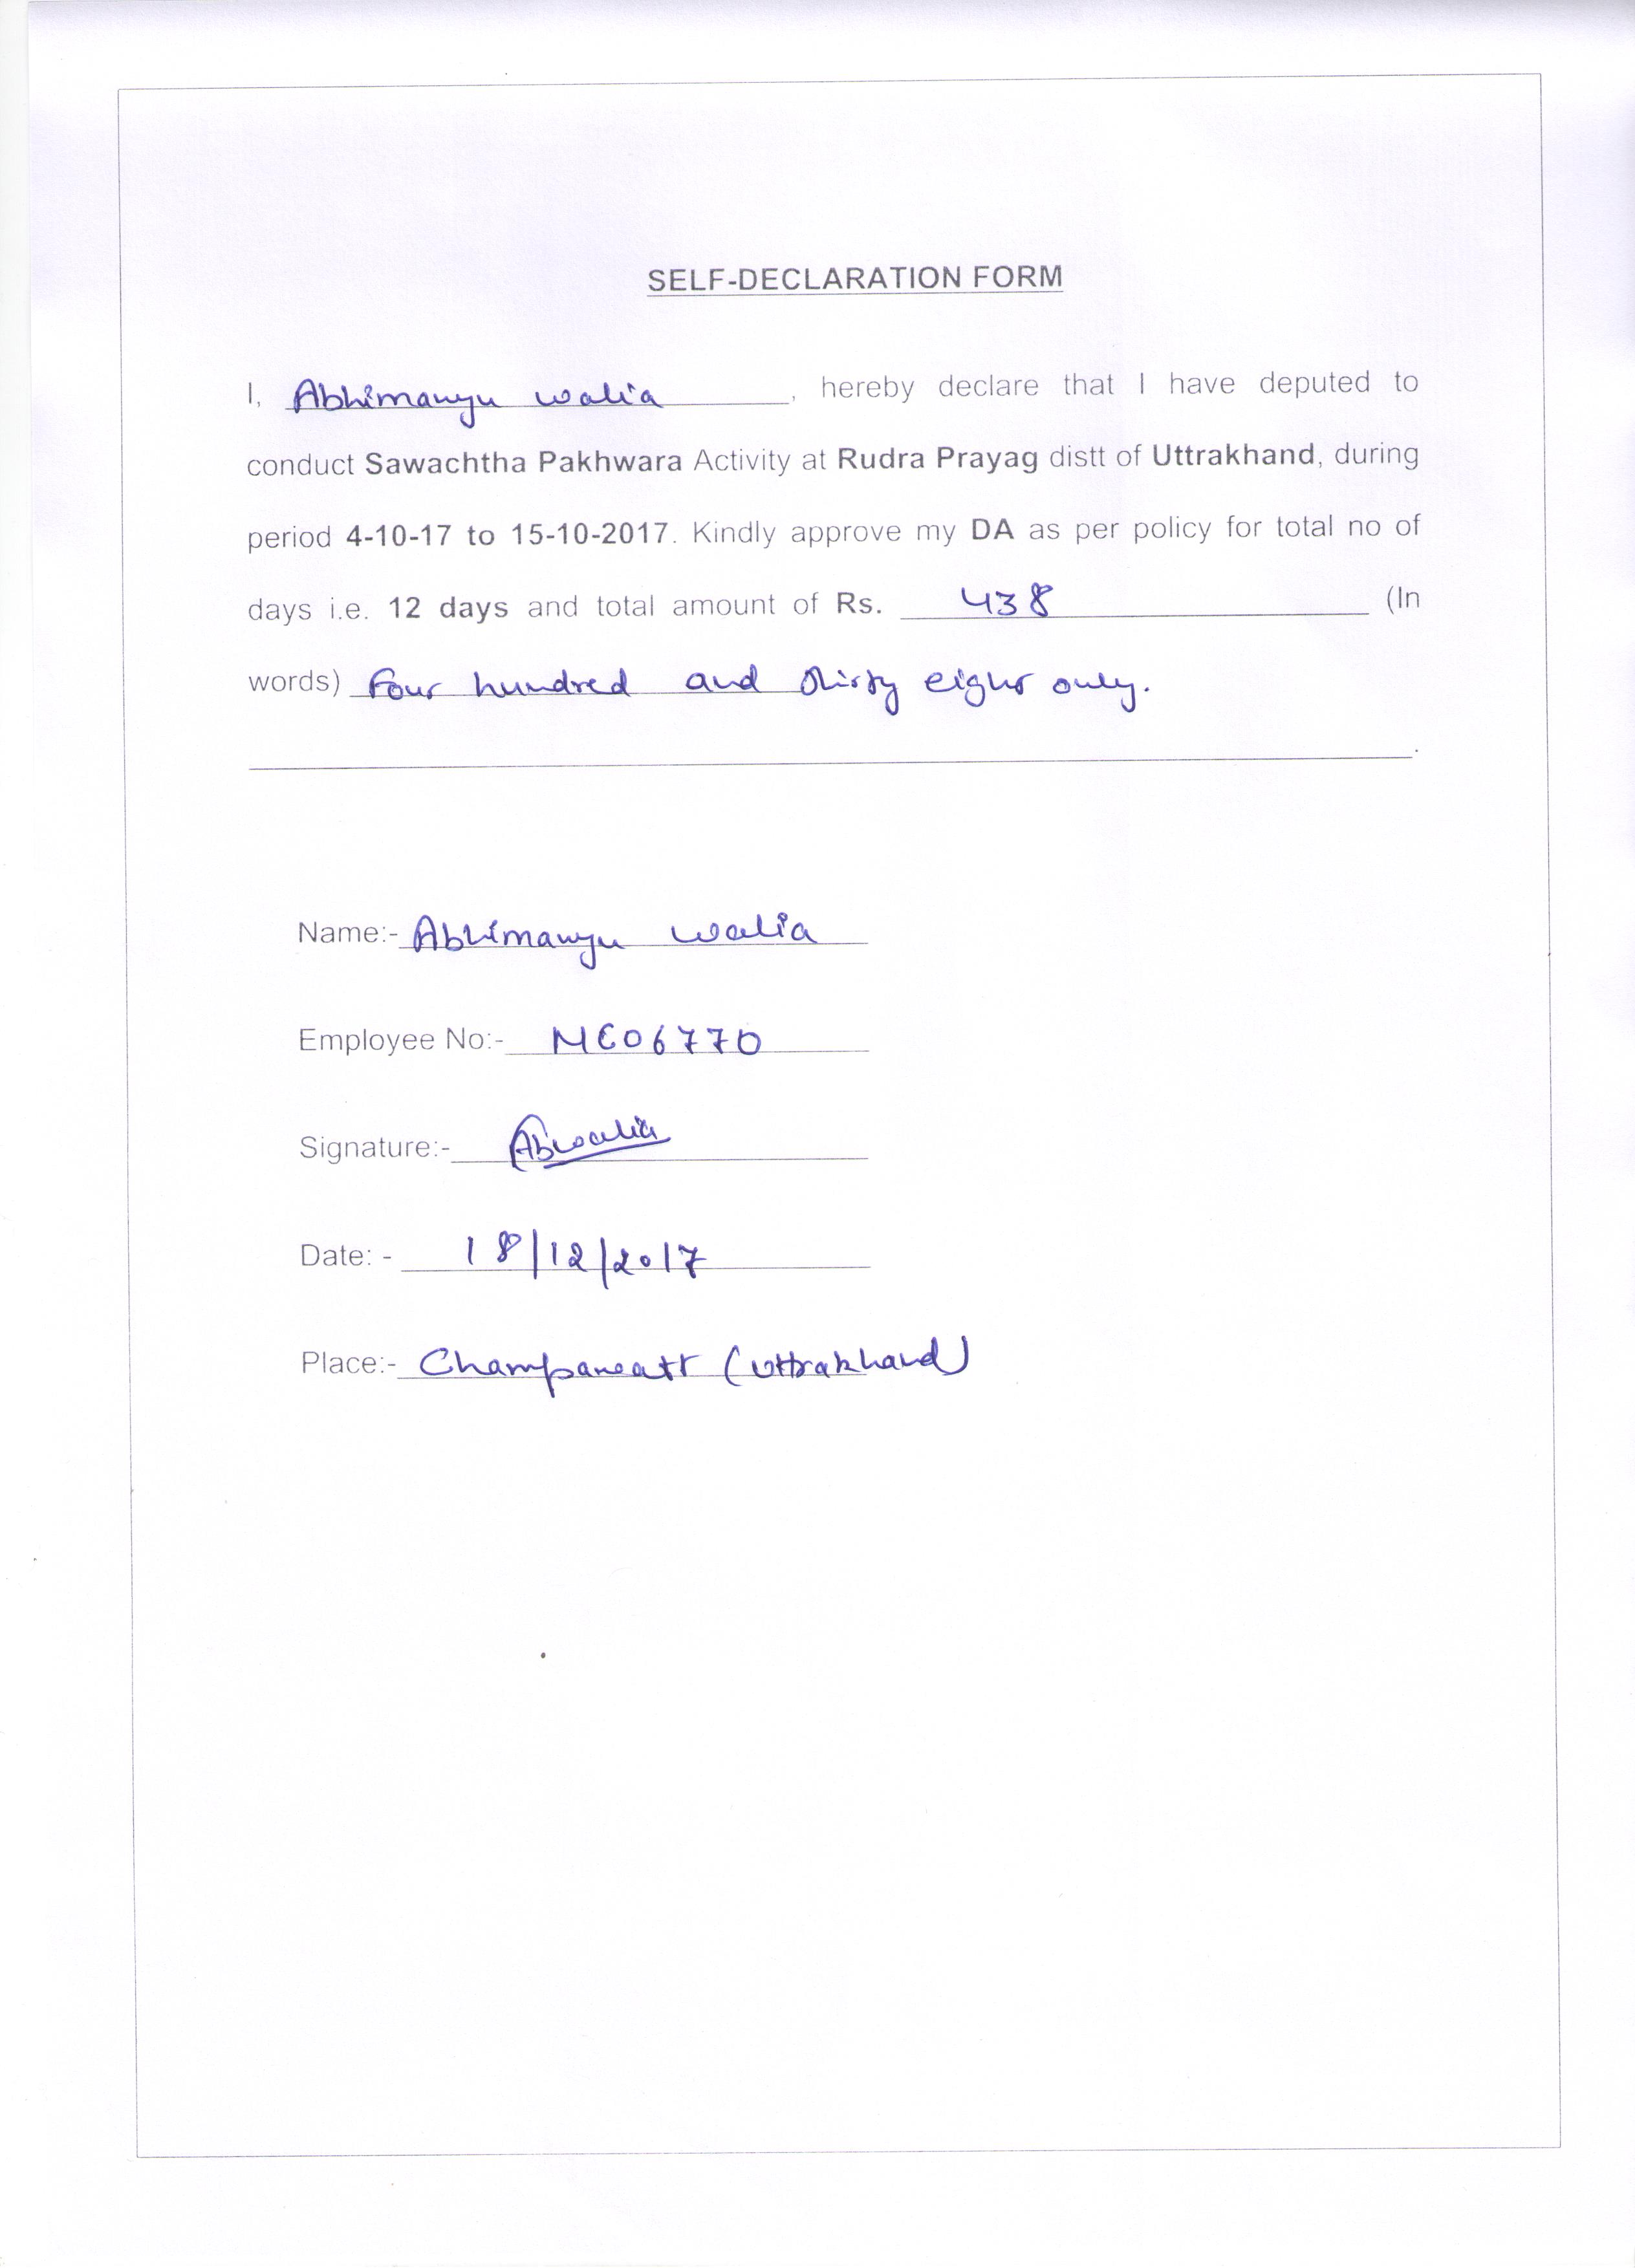 SELF-DECLARATION FORM
I, Abhimanyu walia, hereby declare that I have deputed to
conduct Sawachtha Pakhwara Activity at Rudra Prayag distt of Uttrakhand, during
period 4-10-17 to 15-10-2017. Kindly approve my DA as per policy for total no of
days i.e. 12 days and total amount of Rs. 438 (In
words) Four hundred and thirty eight only.
Name:- Abhimanyu walia
Employee No:-
Signature:- Abwalia
Date: - 18/12/2017
Place:- Champawatt (Uttrakhand)